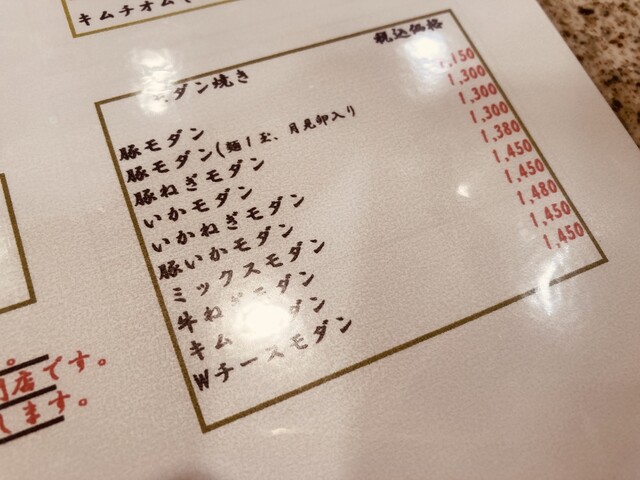 キムチオム
税込価格
ダン焼き
豚モダン 1,150
豚モダン(麺1玉、月見卵入り 1,300
豚ねぎモダン 1,300
いかモダン 1,300
いかねぎモダン 1,380
豚いかモダン 1,450
ミックスモダン 1,450
牛ねぎモダン 1,480
キム ダン 1,450
Wチーズモダン 1,450
店です。
します。